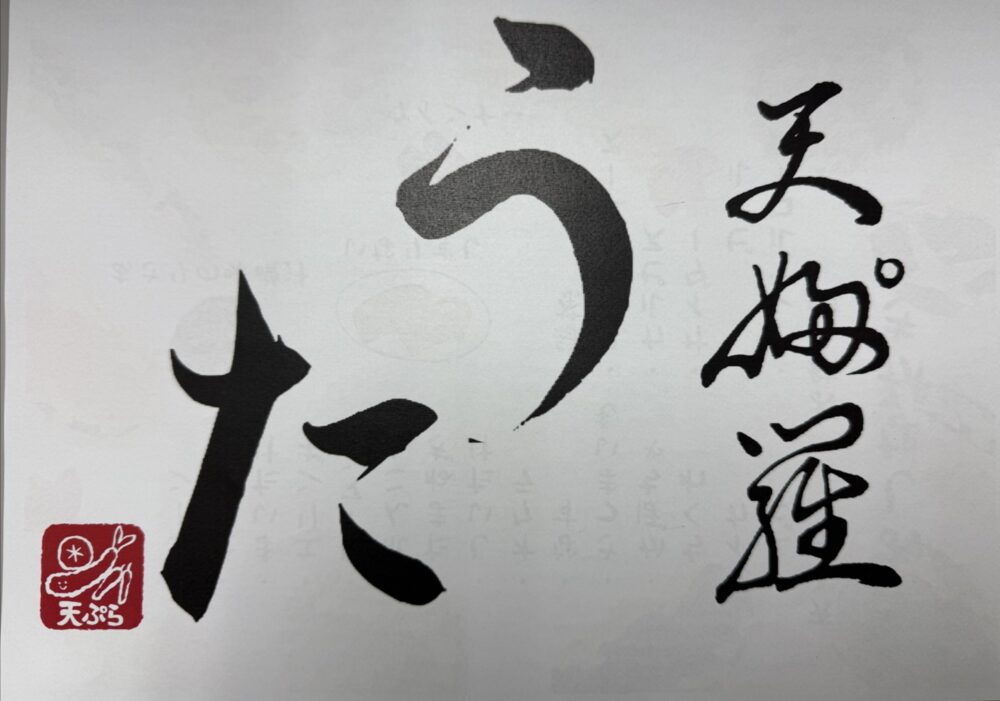 天婦゜羅
うた
天ぷら